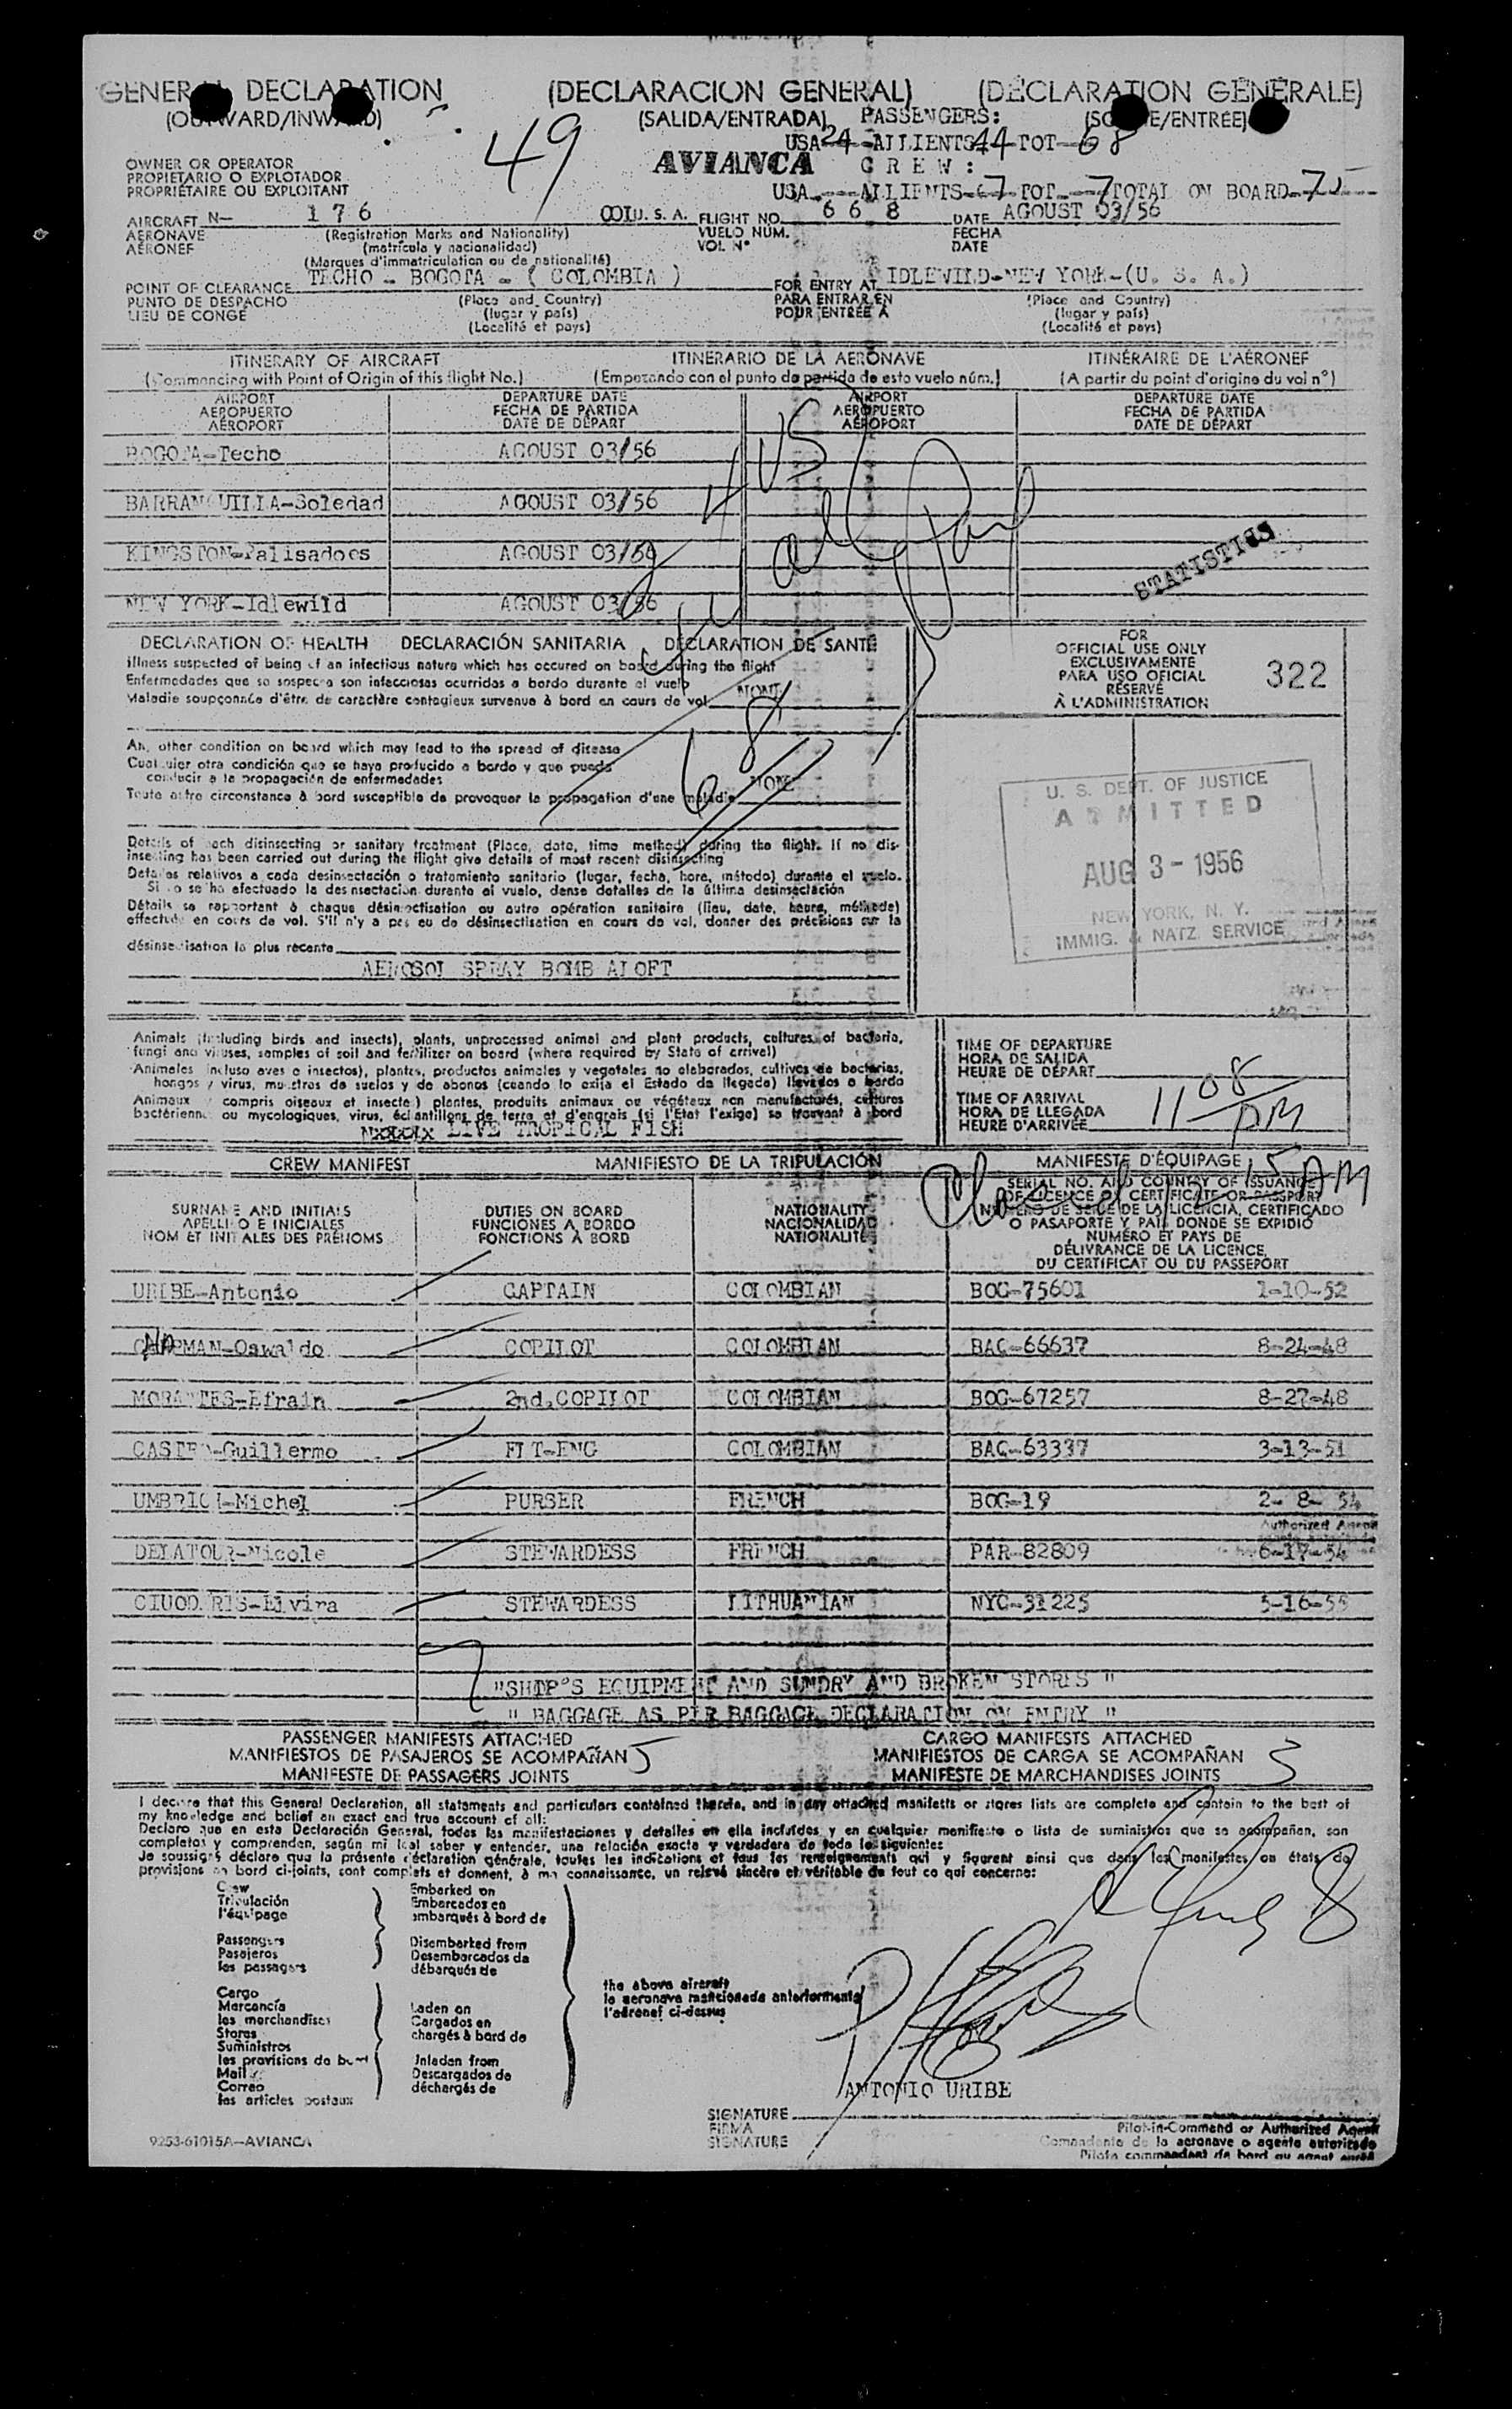 GENERAL DECLARATION (DECLARACION GENERAL) (DÉCLARATION GÉNÉRALE)
(OUTWARD/INWARD) (SALIDA/ENTRADA) PASSENGERS: (SORTIE/ENTRÉE)
49 USA 24 -ALLIENTS 44 TOT 68
OWNER OR OPERATOR AVIANCA CREW:
PROPIETARIO O EXPLOTADOR
PROPRIÉTAIRE OU EXPLOITANT USA ---ALLIENTS- 7 TOT.--7 TOTAL ON BOARD- 75
AIRCRAFT N- 176 U. S. A. FLIGHT NO. 668 DATE AGOUST 03/56
AERONAVE (Registration Marks and Nationality) VUELO NUM. FECHA
AÉRONEF (matrícula y nacionalidad) VOL N° DATE
(Marques d'immatriculation ou de nationalité)
POINT OF CLEARANCE TECHO - BOGOTA - ( COLOMBIA ) FOR ENTRY AT IDLEWILD-NEW YORK-(U. S. A.)
PUNTO DE DESPACHO (Place and Country) PARA ENTRAR EN (Place and Country)
LIEU DE CONGÉ (lugar y país) POUR ENTRÉE À (lugar y país)
(Localité et pays) (Localité et pays)
ITINERARY OF AIRCRAFT ITINERARIO DE LA AERONAVE ITINÉRAIRE DE L'AÉRONEF
(Commencing with Point of Origin of this flight No.) (Empezando con el punto de partida de este vuelo núm.) (A partir du point d'origine du vol n°)
AIRPORT DEPARTURE DATE AIRPORT DEPARTURE DATE
AEROPUERTO FECHA DE PARTIDA AEROPUERTO FECHA DE PARTIDA
AÉROPORT DATE DE DÉPART AÉROPORT DATE DE DÉPART
BOGOTA-Techo AGOUST 03/56
BARRANQUILLA-Soledad AGOUST 03/56
KINGSTON-Palisadoes AGOUST 03/56
STATISTICS
NEW YORK-Idlewild AGOUST 03/56
DECLARATION OF HEALTH DECLARACIÓN SANITARIA DÉCLARATION DE SANTÉ
Illness suspected of being of an infectious nature which has occured on board during the flight
Enfermedades que se sospecha son infecciosas ocurridas a bordo durante el vuelo
Maladie soupçonnée d'être de caractère contagieux survenue à bord en cours de vol NONE
FOR
OFFICIAL USE ONLY
EXCLUSIVAMENTE
PARA USO OFICIAL
RÉSERVÉ
À L'ADMINISTRATION
322
Any other condition on board which may lead to the spread of disease
Cualquier otra condición que se haya producido a bordo y que pueda
conducir a la propagación de enfermedades
Toute autre circonstance à bord susceptible de provoquer la propagation d'une maladie NONE
68
U. S. DEPT. OF JUSTICE
ADMITTED
AUG 3 - 1956
NEW YORK, N. Y.
IMMIG. & NATZ. SERVICE
Details of each disinsecting or sanitary treatment (Place, date, time method) during the flight. If no dis-
insecting has been carried out during the flight give details of most recent disinsecting
Detalles relativos a cada desinsectación o tratamiento sanitario (lugar, fecha, hora, método) durante el vuelo.
Si no se ha efectuado la desinsectación durante el vuelo, dense detalles de la última desinsectación
Détails se rapportant à chaque désinsectisation ou autre opération sanitaire (lieu, date, heure, méthode)
effectuée en cours de vol. S'il n'y a pas eu de désinsectisation en cours de vol, donner des précisions sur la
désinsectisation la plus récente
AEROSOL SPRAY BOMB ALOFT
Animals (including birds and insects), plants, unprocessed animal and plant products, cultures of bacteria,
fungi and viruses, samples of soil and fertilizer on board (where required by State of arrival)
Animales incluso aves e insectos), plantas, productos animales y vegetales no elaborados, cultivos de bacterias,
hongos y virus, muestras de suelos y de abonos (cuando lo exija el Estado de llegada) llevados a bordo
Animaux y compris oiseaux et insectes) plantes, produits animaux ou végétaux non manufacturés, cultures
bactériennes ou mycologiques, virus, échantillons de terre et d'engrais (si l'Etat l'exige) se trouvant à bord
LIVE TROPICAL FISH
TIME OF DEPARTURE
HORA DE SALIDA
HEURE DE DÉPART
TIME OF ARRIVAL
HORA DE LLEGADA
HEURE D'ARRIVÉE 11 08 PM
CREW MANIFEST MANIFIESTO DE LA TRIPULACIÓN MANIFESTE D'ÉQUIPAGE
15 AM
SURNAME AND INITIALS DUTIES ON BOARD NATIONALITY SERIAL NO. AND COUNTRY OF ISSUANCE
APELLIDO E INICIALES FUNCIONES A BORDO NACIONALIDAD OF LICENCE OR CERTIFICATE OR PASSPORT
NOM ET INITIALES DES PRÉNOMS FONCTIONS À BORD NATIONALITÉ NÚMERO DE SERIE DE LA LICENCIA, CERTIFICADO
O PASAPORTE Y PAÍS DONDE SE EXPIDIÓ
NUMÉRO ET PAYS DE
DÉLIVRANCE DE LA LICENCE,
DU CERTIFICAT OU DU PASSEPORT
URIBE-Antonio CAPTAIN COLOMBIAN BOG-75601 1-10-52
CHAPMAN-Oswaldo COPILOT COLOMBIAN BAC-66637 8-24-48
MORANTES-Efrain 2nd.COPILOT COLOMBIAN BOG-67257 8-27-48
CASTRO-Guillermo FLT-ENG COLOMBIAN BAC-63337 3-13-51
UMBRICH-Michel PURSER FRENCH BOG-19 2- 8- 54
Authorized Agent
DELATOUR-Nicole STEWARDESS FRENCH PAR-82809 6-17-54
CIUODERIS-Elvira STEWARDESS LITHUANIAN NYC-31225 5-16-55
7
"SHIP'S EQUIPMENT AND SUNDRY AND BROKEN STORES "
" BAGGAGE AS PER BAGGAGE DECLARATION ON ENTRY "
PASSENGER MANIFESTS ATTACHED CARGO MANIFESTS ATTACHED
MANIFIESTOS DE PASAJEROS SE ACOMPAÑAN 5 MANIFIESTOS DE CARGA SE ACOMPAÑAN 3
MANIFESTE DE PASSAGERS JOINTS MANIFESTE DE MARCHANDISES JOINTS
I declare that this General Declaration, all statements and particulars contained therein, and in any attached manifests or stores lists are complete and contain to the best of
my knowledge and belief an exact and true account of all:
Declaro que en esta Declaración General, todas las manifestaciones y detalles en ella incluídos y en cualquier manifiesto o lista de suministros que se acompañan, son
completos y comprenden, según mi leal saber y entender, una relación exacta y verdadera de todo lo siguiente:
Je soussigné déclare que la présente déclaration générale, toutes les indications et tous les renseignements qui y figurent ainsi que dans les manifestes ou états de
provisions de bord ci-joints, sont complets et donnent, à ma connaissance, un relevé sincère et véritable de tout ce qui concerne:
Crew Embarked on
Tripulación Embarcados en
l'équipage embarqués à bord de
Passengers Disembarked from
Pasajeros Desembarcados de
les passagers débarqués de
the above aircraft
la aeronave mencionada anteriormente
l'aéronef ci-dessus
Cargo
Mercancía Laden on
les marchandises Cargados en
Stores chargés à bord de
Suministros
les provisions de bord Unladen from
Mail Descargados de
Correo déchargés de
les articles postaux
ANTONIO URIBE
SIGNATURE
FIRMA
SIGNATURE
Pilot-in-Command or Authorized Agent
Comandante de la aeronave o agente autorizado
Pilote commandant de bord ou agent
9253-61015A—AVIANCA